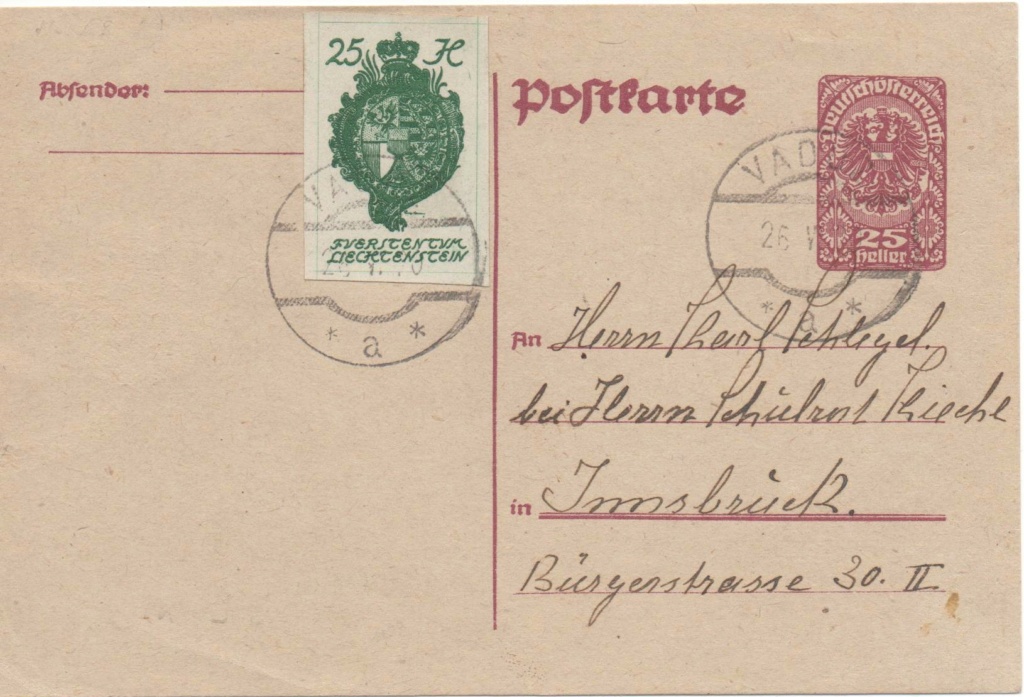 Absender:
25 H
FVERSTENTVM
LIECHTENSTEIN
VA
26 V. 20
* a *
Postkarte
Deutschösterreich
25
Heller
VAD
26 V
* a *
An Herrn Karl Schlegel.
bei Herrn Schulrat Kieche
in Innsbrück.
Bürgerstrasse 30. II.